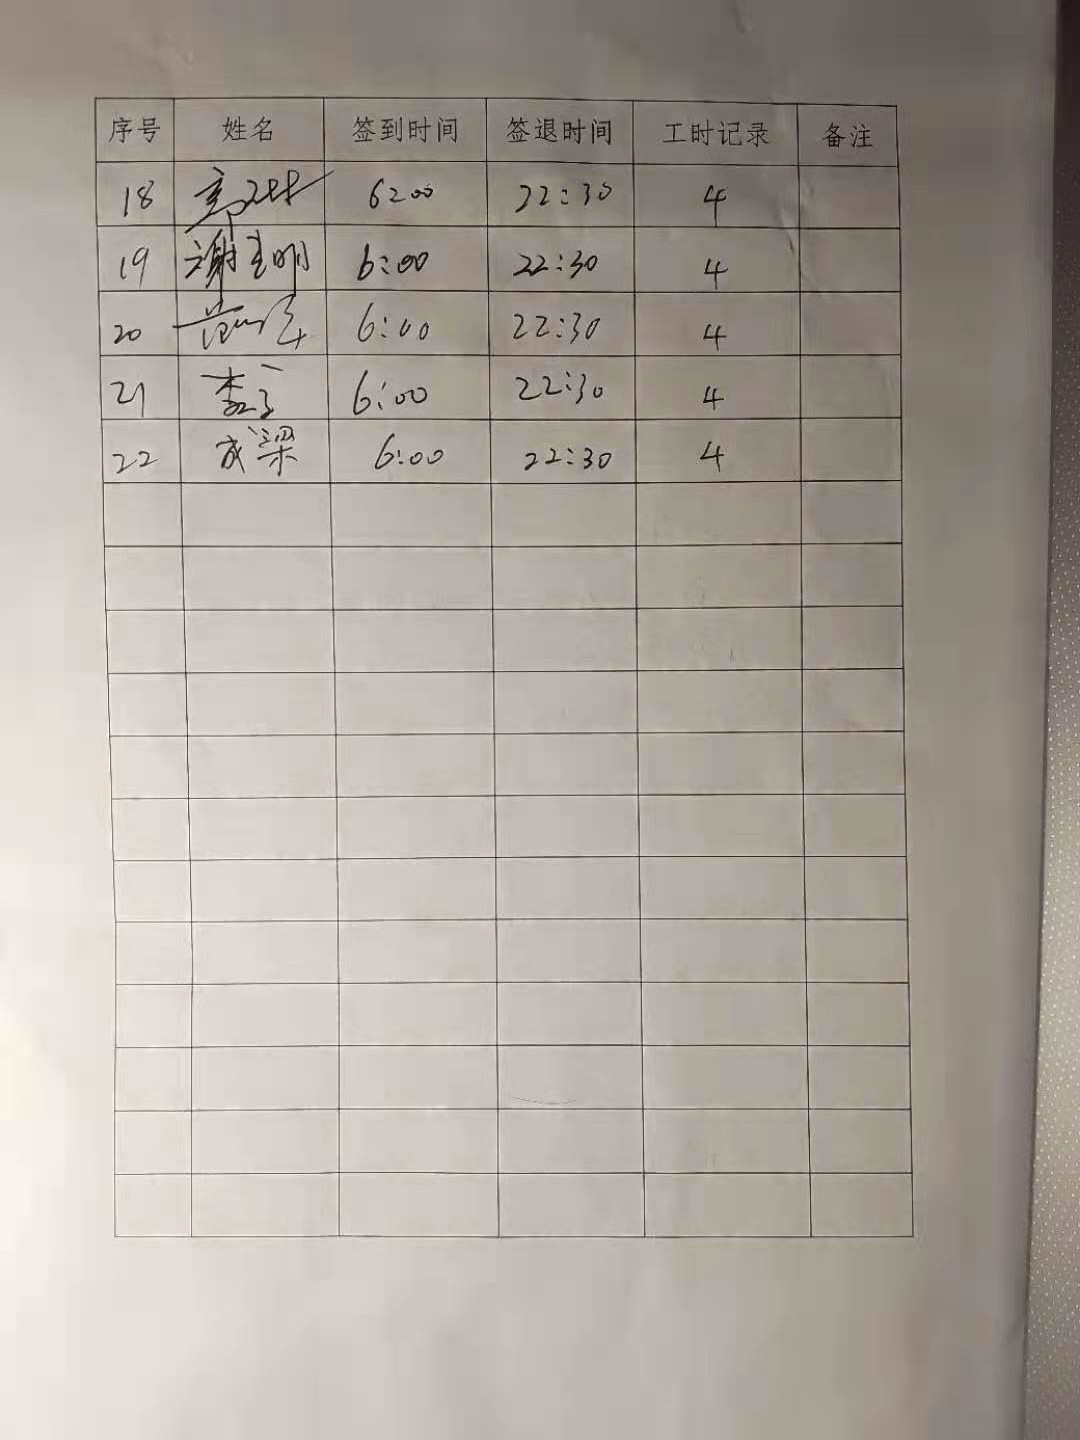 序号 姓名 签到时间 签退时间 工时记录 备注
18 6:00 22:30 4
19 谢 明 6:00 22:30 4
20 范 6:00 22:30 4
21 李 6:00 22:30 4
22 成梁 6:00 22:30 4